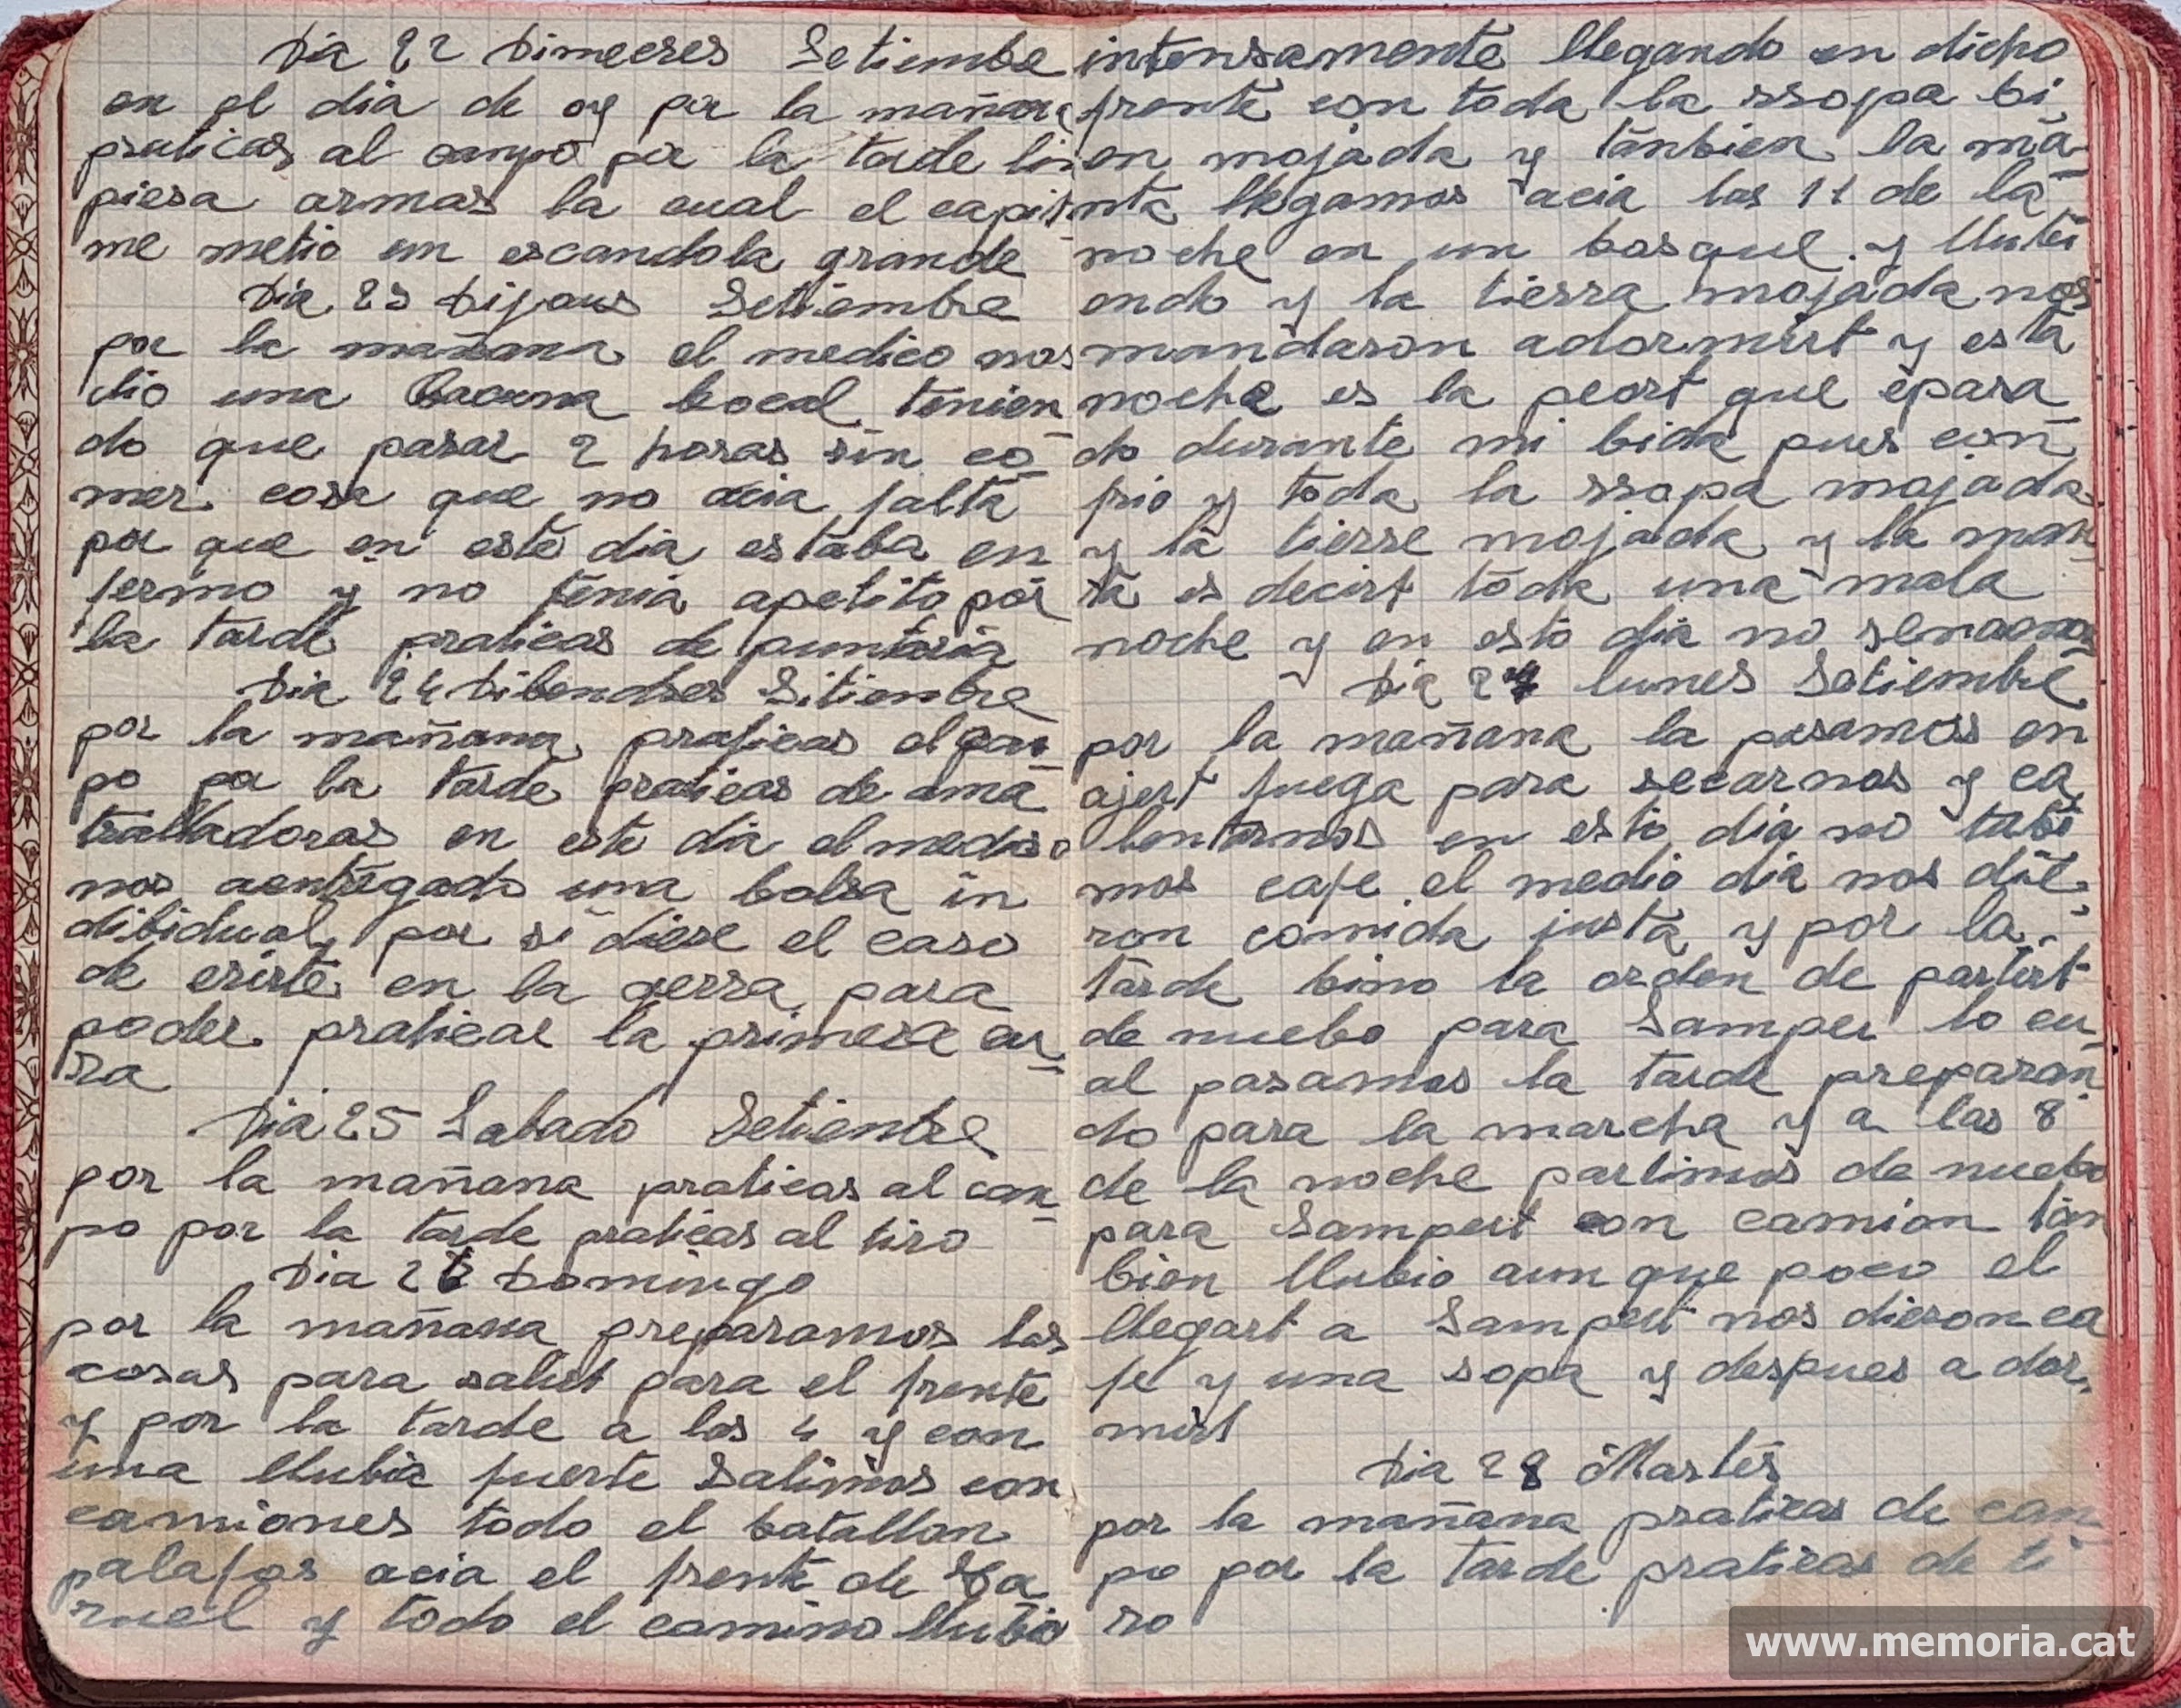 Dia 22 Dimecres Setiembre
en el dia de oy por la mañana
praticas al campo por la tarde lin
piesa armas la cual el capitan
me metio un escandola grande
Dia 23 Dijous Setiembre
por la mañana el medico nos
dio una Bacuna bocal tenien
do que pasar 2 horas sin co-
mer cosa que no acia falta
por que en este dia estaba en
fermo y no tenia apetito por
la tarde praticas de punteria
Dia 24 Dibendres Sitiembre
por la mañana praticas al can
po por la tarde praticas de ama
tralladoras en este dia el medico
nos aentregado una bolsa in
dibidual por si diese el caso
de erirte en la gerra para
poder praticar la primera cu-
ra
Dia 25 Sabado Setiembre
por la mañana praticas al can-
po por la tarde praticas al tiro
Dia 26 Domingo
por la mañana preparamos las
cosas para salirt para el frente
y por la tarde a las 4 y con
una llubia fuerte salimos con
camiones todo el batallon
palafos acia el frente de Ta
ruel y todo el camino llubio
intensamente llegando en dicho
frente con toda la rropa bi
en mojada y tanbien la ma-
nta llegamos acia las 11 de la
noche en un bosque y llubi
endo y la tierra mojada nos
mandaron adormirt y esta
noche es la peort que epasa
do durante mi bida pues con
frio y toda la rropa mojada
y la tierre mojada y la man-
ta es decirt toda una mala
noche y en esto dia no senamos
Dia 27 lunes Setiembre
por la mañana la pasamos en
ajert fuega para secarnos y ca
lentarnos en esto dia no tubi
mos cafe el medio dia nos die-
ron comida justa y por la
tarde bino la orden de partirt
de nuebo para Samper lo cu-
al pasamos la tarde preparan
do para la marcha y a las 8
de la noche partimos de nuebo
para Sampert con camion tan
bien llubio aun que poco el
llegart a Sampert nos dieron ca
fe y una sopa y despues a dor-
mirt
Dia 28 Martes
por la mañana praticas de can-
po por la tarde praticas de ti
ro
www.memoria.cat